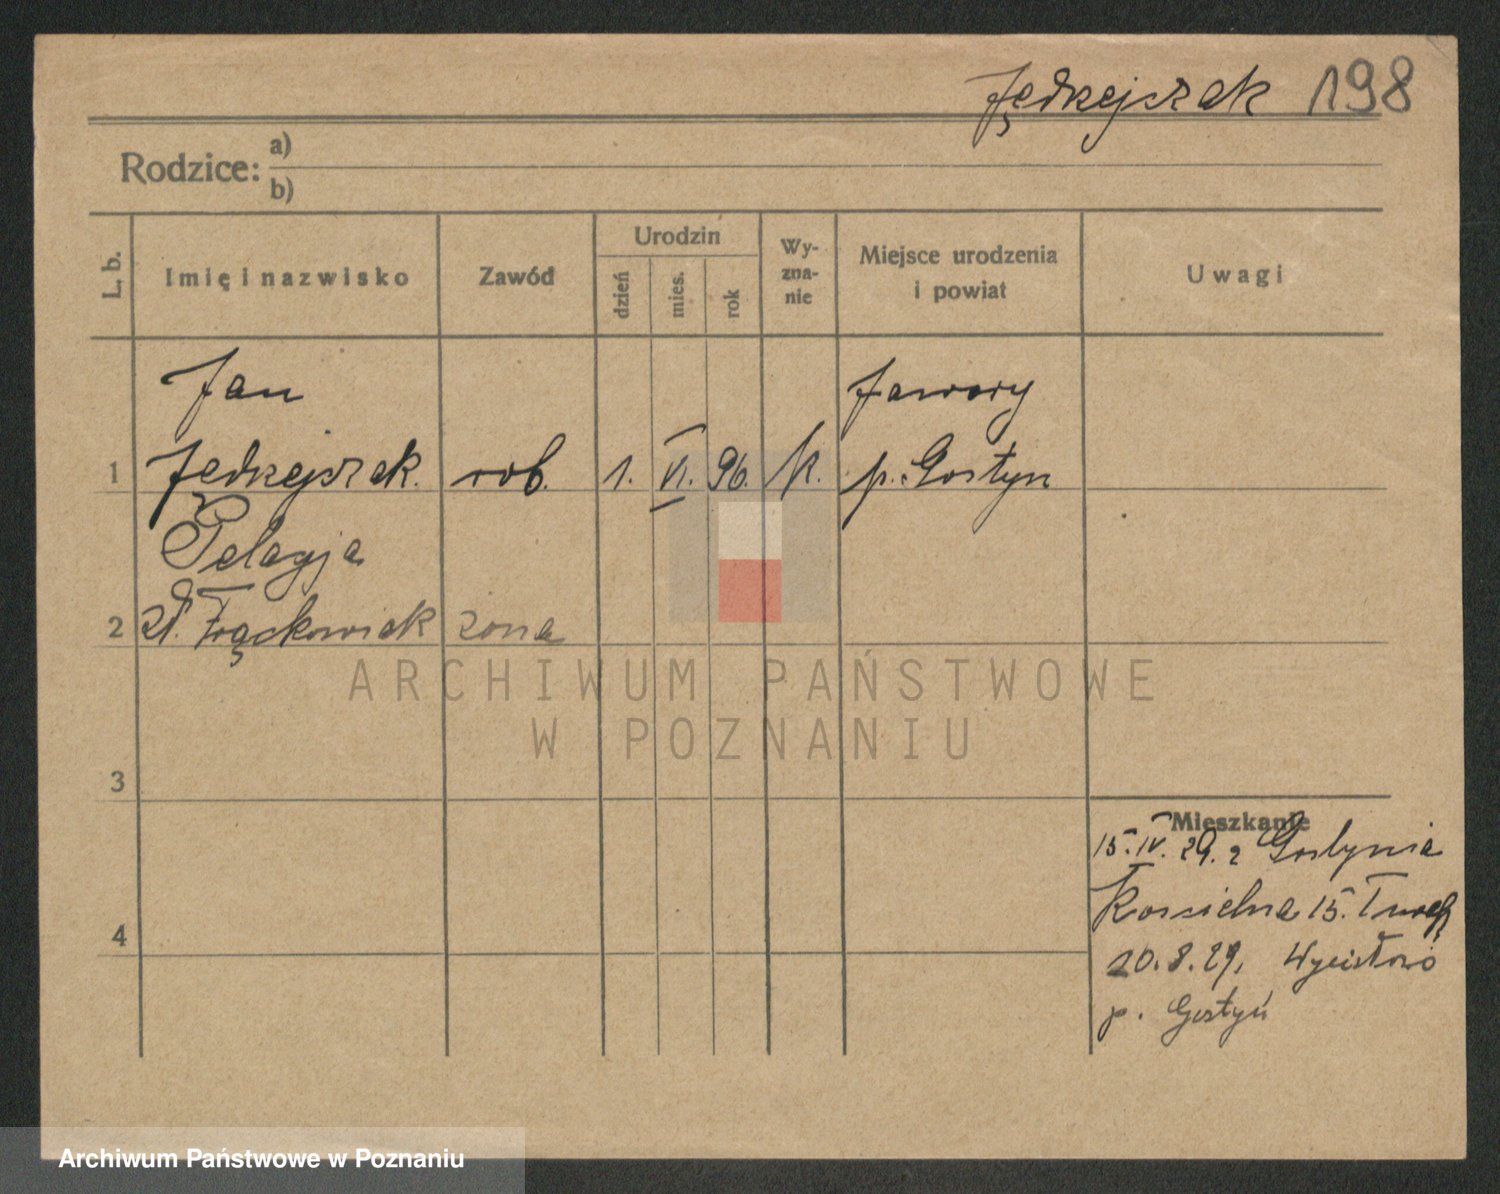 Jędrzejczak 198
Rodzice: a)
b)
L. b. Imię i nazwisko Zawód Urodzin dzień mies. rok Wy-zna-nie Miejsce urodzenia i powiat Uwagi
Jan Jawory
1 Jędrzejczak. rob. 1. VI. 96. k. p. Gostyn
Pelagja
2 żona
ARCHIWUM PAŃSTWOWE
W POZNANIU
3
Mieszkanie
15. IV. 29. z Gostynia
Koscielna 15.
4
20. 8. 29,
p. Gostyń
Archiwum Państwowe w Poznaniu